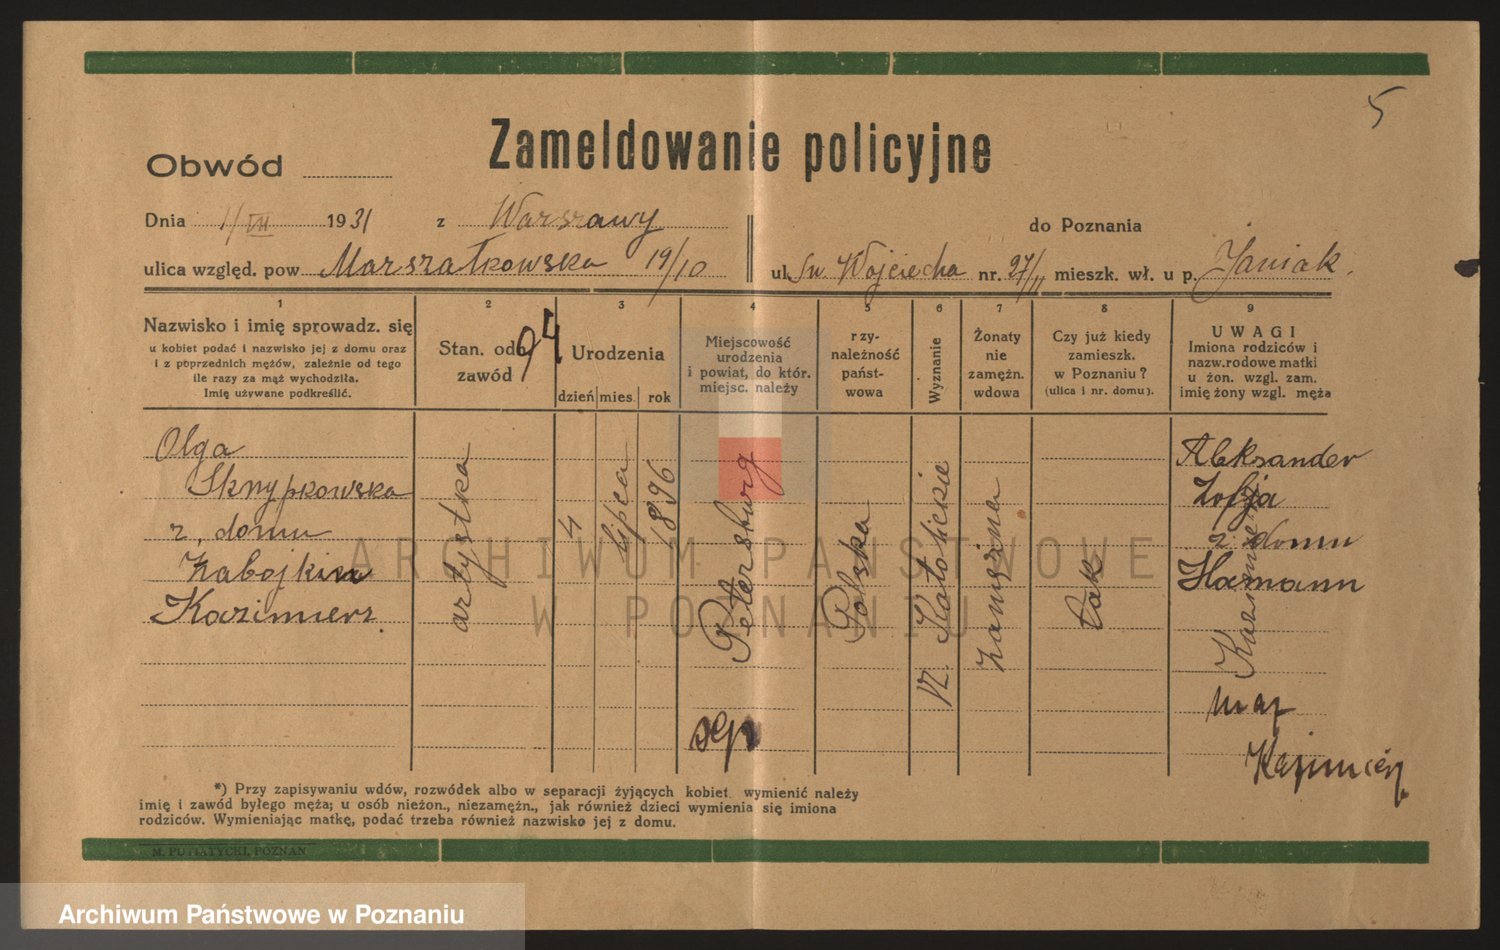 5
Zameldowanie policyjne
Obwód
Dnia 1/VII 1931 z Warszawy do Poznania
ulica względ. pow Marszałkowska 19/10 ul. Św. Wojciecha nr. 27/II mieszk. wł. u p. Janiak.
1 2 3 4 5 6 7 8 9
Nazwisko i imię sprowadz. się
u kobiet podać i nazwisko jej z domu oraz
i z poprzednich mężów, zależnie od tego
ile razy za mąż wychodziła.
Imię używane podkreślić.
Stan. od
zawód
94
Urodzenia
dzień mies. rok
Miejscowość
urodzenia
i powiat, do któr.
miejsc. należy
rzy-
należność
państ-
wowa
Wyznanie
Żonaty
nie
zamężn.
wdowa
Czy już kiedy
zamieszk.
w Poznaniu?
(ulica i nr. domu).
UWAGI
Imiona rodziców i
nazw. rodowe matki
u żon. wzgl. zam.
imię żony wzgl. męża
Olga
Skrypkowska
z, domu
Zabojkin
Kazimierz.
artystka
4
lipca
1896
Petersburg
Polska
rz. Katolickie
zamężna
tak
Aleksander
Zofja
z domu
Hamann
mąż
Kazimierz
*) Przy zapisywaniu wdów, rozwódek albo w separacji żyjących kobiet wymienić należy
imię i zawód byłego męża; u osób nieżon., niezamężn., jak również dzieci wymienia się imiona
rodziców. Wymieniając matkę, podać trzeba również nazwisko jej z domu.
M. PUTIATYCKI, POZNAŃ
ARCHIWUM PAŃSTWOWE
W POZNANIU
Archiwum Państwowe w Poznaniu